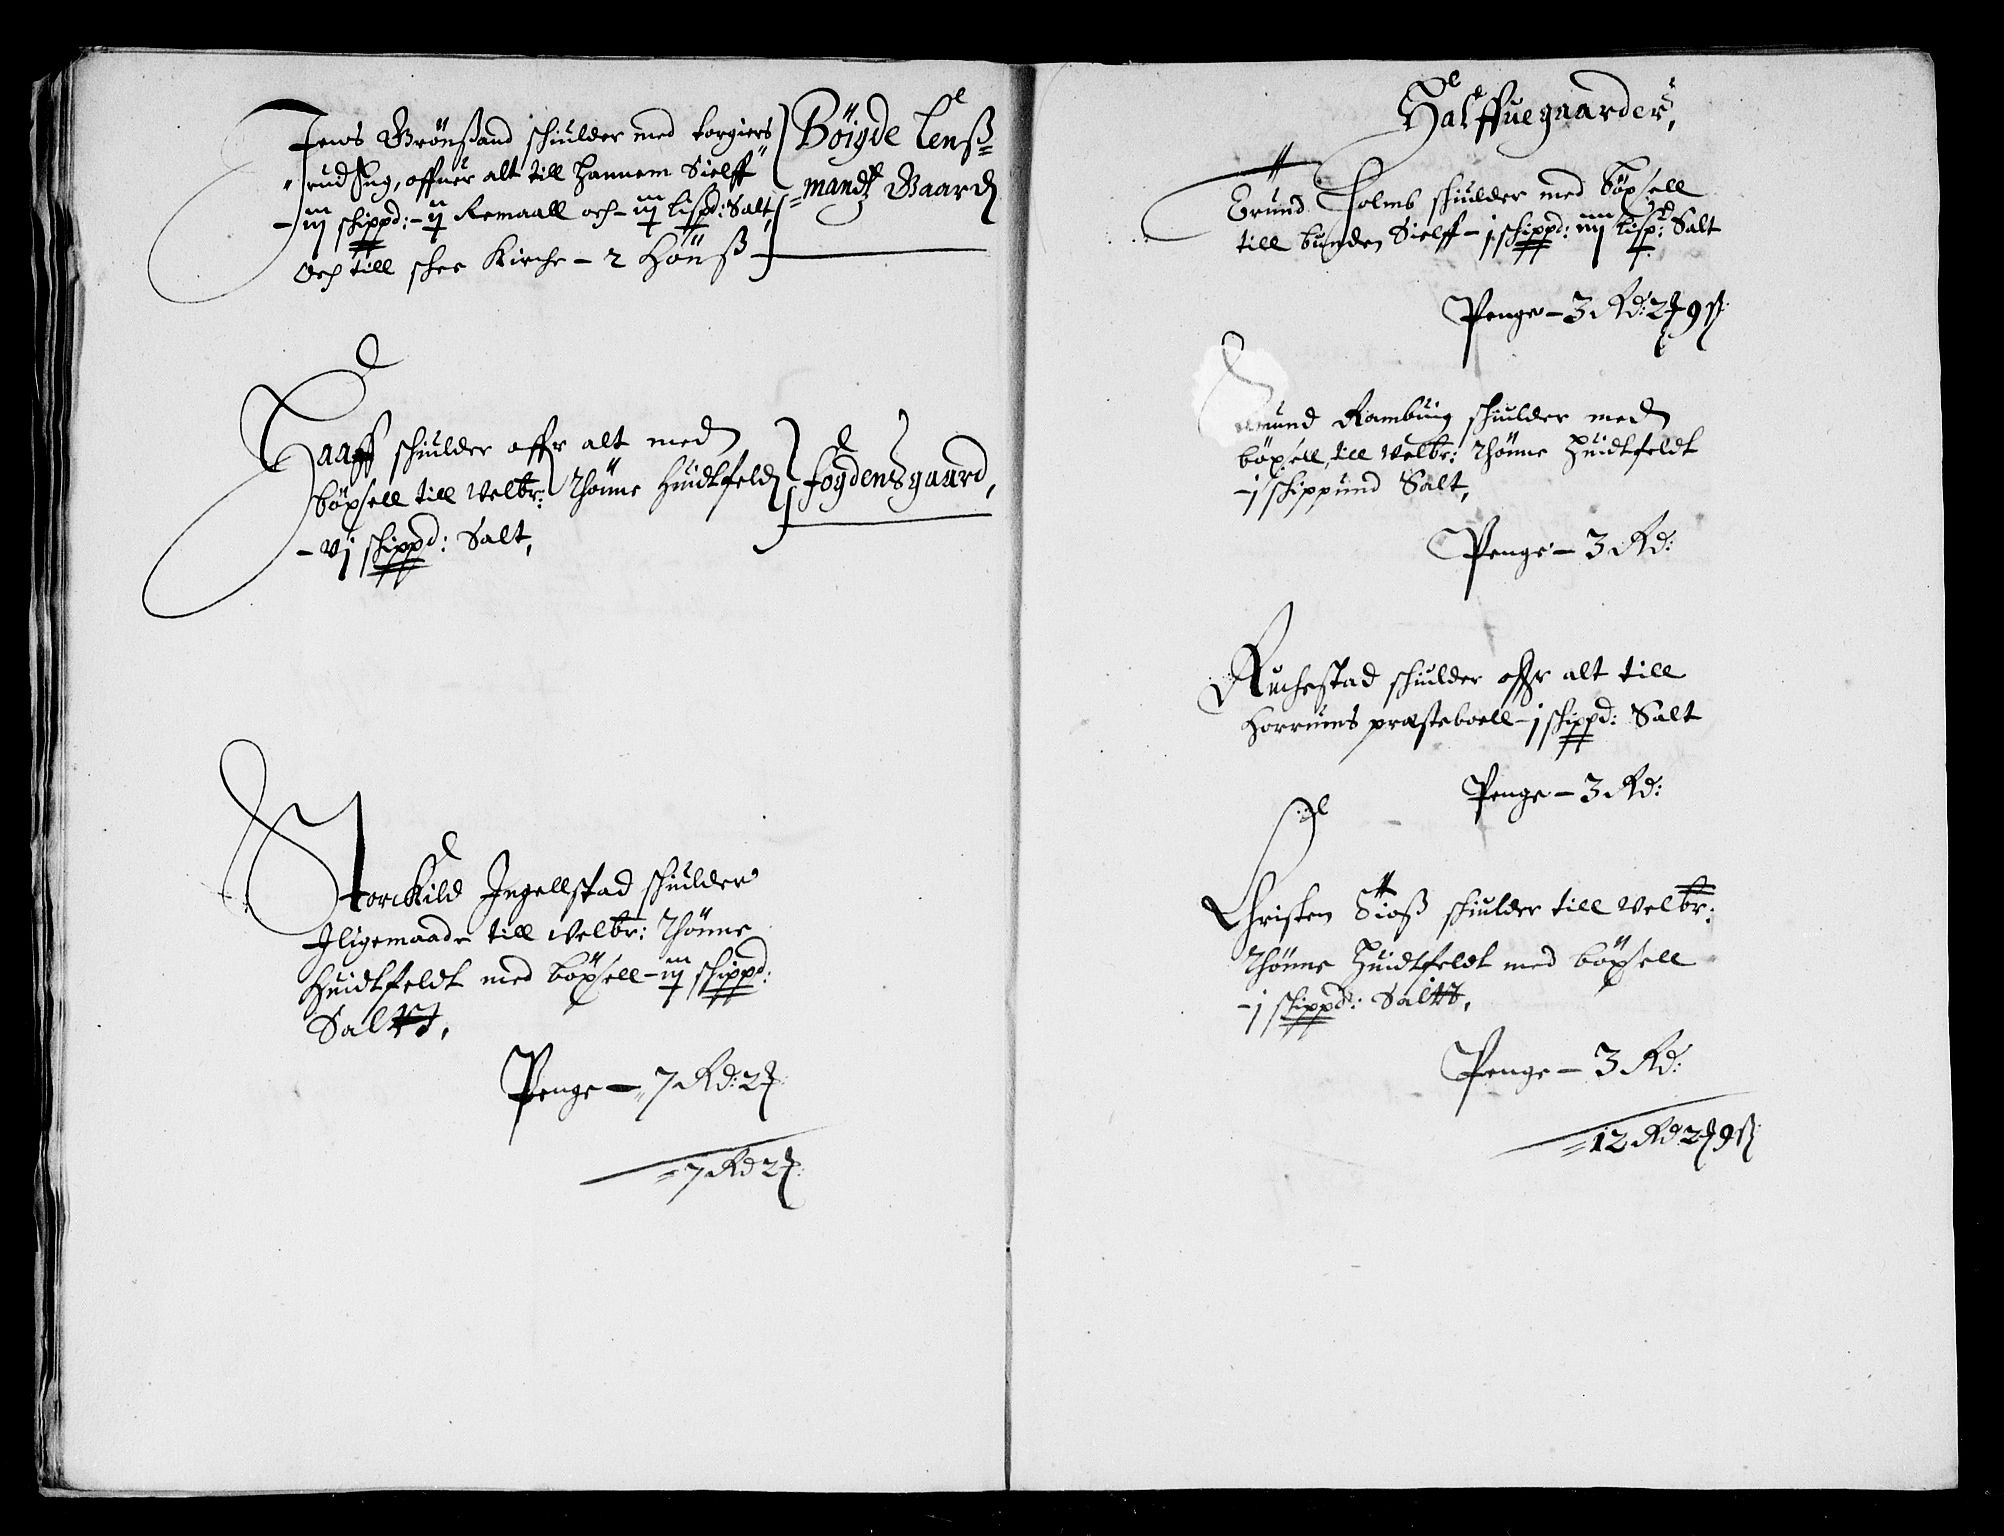 Jens Grönßand schiulder med torgiers
rud Eng, offuer alt till hannem Sielff
- iij schippd: - ij Remaall och - iij lispd: Salt,
Och till schee Kirche - 2 Hönß
Böigde lenß=
=mandz Gaard
Haaff schiulder offr alt med
böxsell till Velbr: Thönne Huidtfeld
- vj schippd: Salt,
fogdens gaard,
Torckild Ingellstad schiulder
Iligemaade till Velbr: Thönne
Huidtfeldt med böxsell - iij schippd:
Saltt,
Penge - 7 Rd: 2 ʒ:
= 7 Rd 2 ʒ:
Halffuegaarder,
Trund Holms schiulder med böxsell
till bunden Sielff - j schippd: iiij lisp: Salt
Penge - 3 Rd: 2 ʒ 9 ß:
Rambüig schiulder med
böxsell, till Velbr: Thönne Huidtfeldt
- j schippund Salt,
Penge - 3 Rd:
Ruchestad schiulder offr alt till
Horrums præsteboell - j schippd: Salt
Penge - 3 Rd:
Christen Sioß schiulder till Velbr:
Thönne Huidtfeldt med böxsell
- j schippd: Saltt,
Penge - 3 Rd:
= 12 Rd 2 ʒ 9 ß